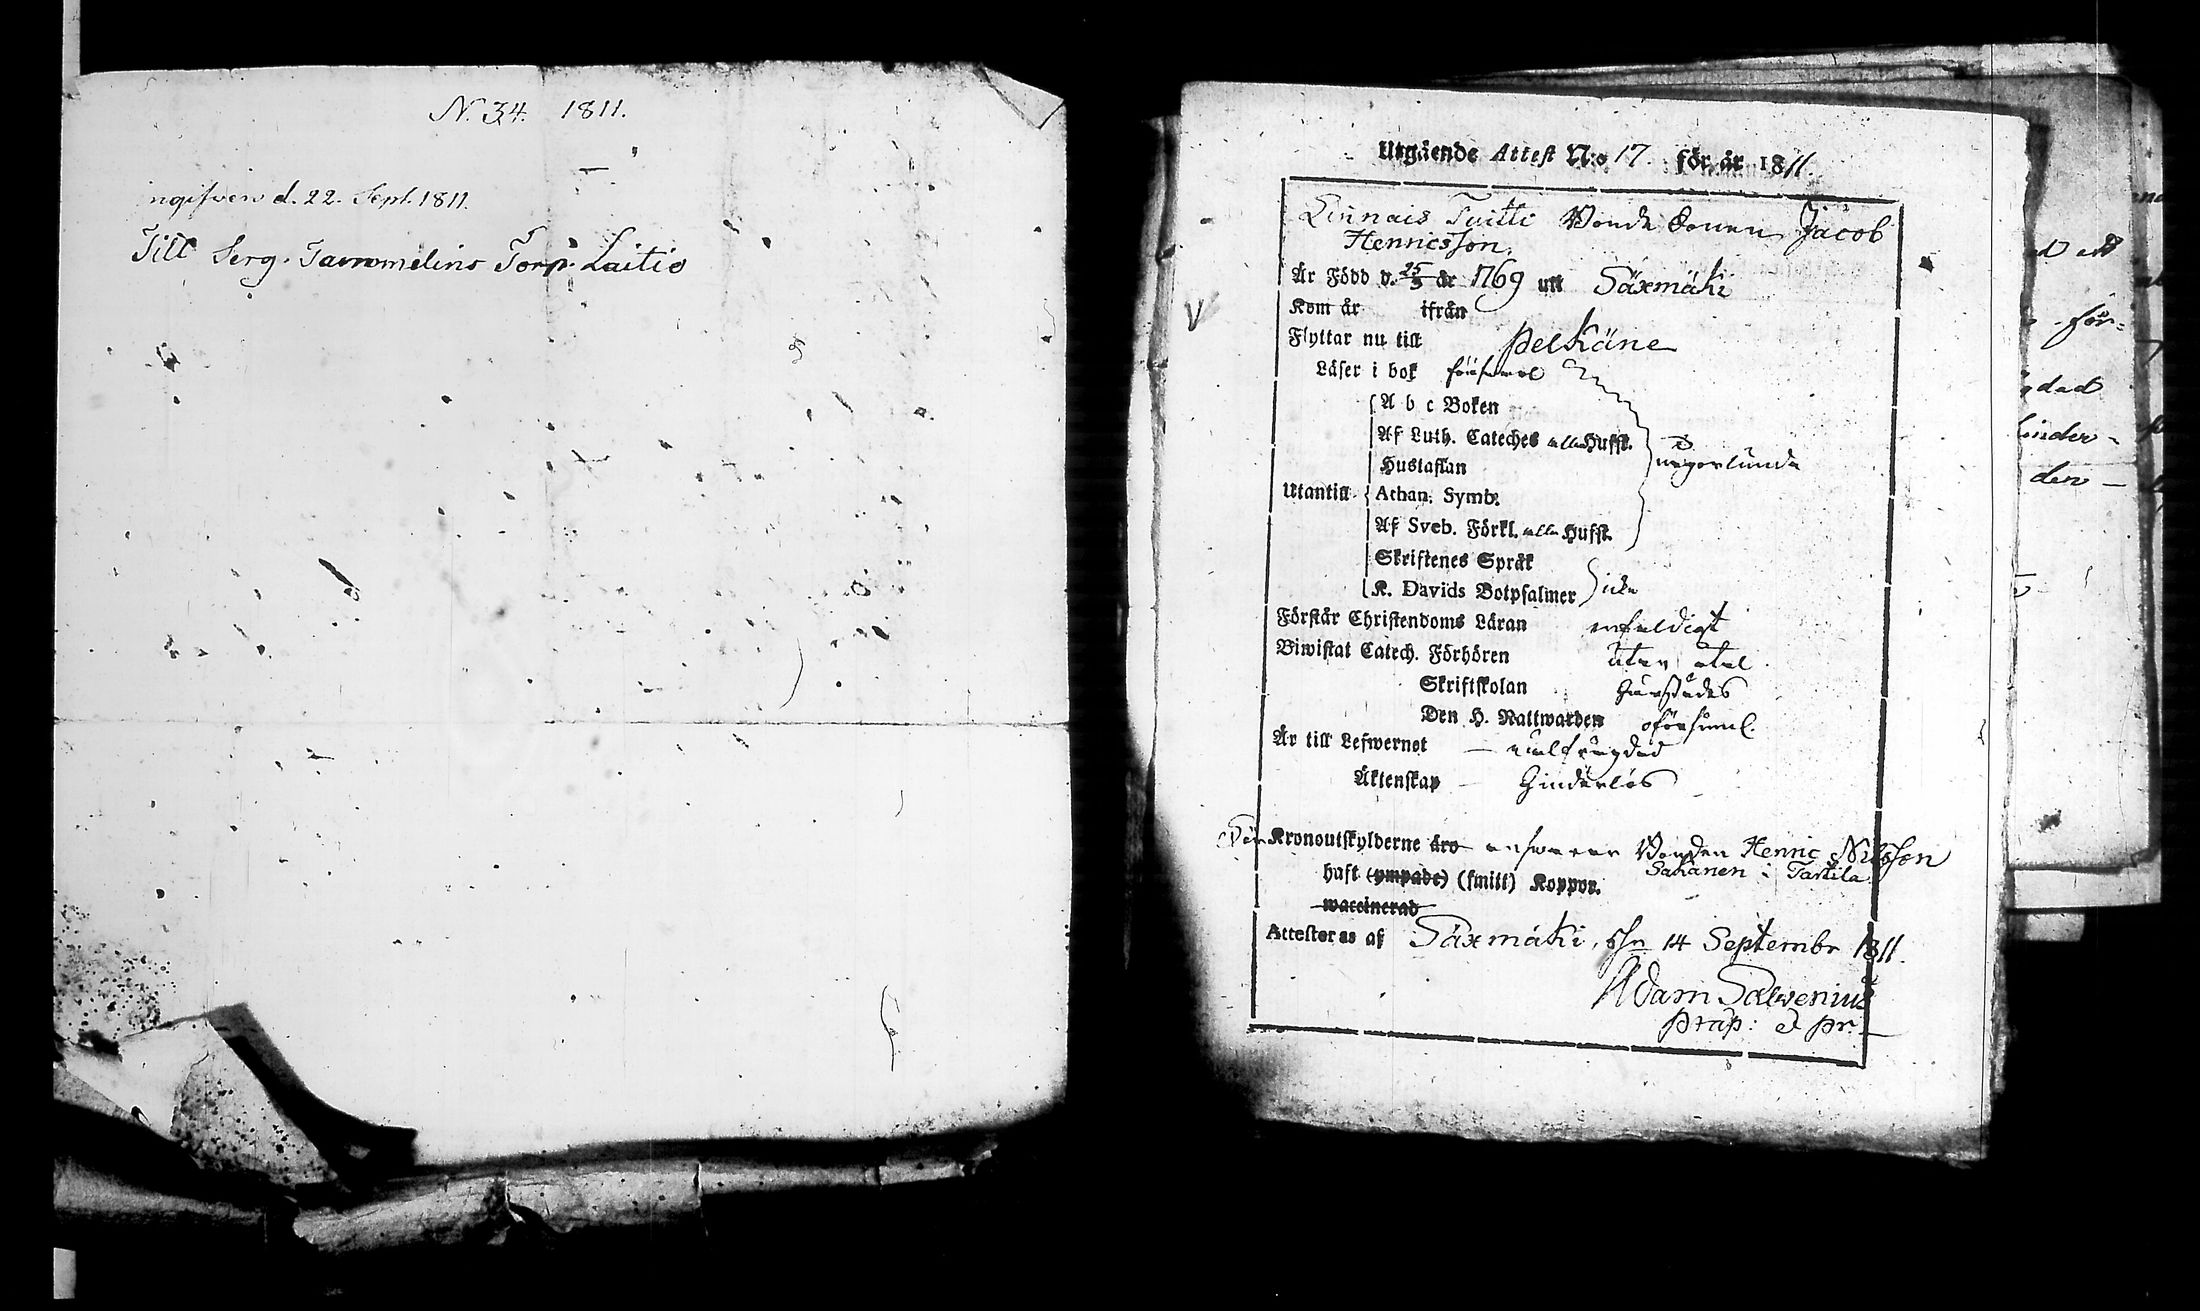 N. 34. 1811.
ingifven d. 22. Sept. 1811.
Till Serg. Tammelins Torp. Laitio
Utgående Attest N:o 17. för år 1811.
Linnais Tuitti Bonde Sonen Jacob
Henricsson.
Är Född d. 25/3 år 1769 uti Säxmäki
Kom år ifrån
Flyttar nu till Pelkäne
Läser i bok försvarl
A b c Boken
Af Luth. Cateches alla Hufst.
Hustaflan
någorlunda
Utantill Athan. Symb.
Af Sveb. Förkl. alla Hufst.
Skriftenes Språk
K. Davids Botpsalmer icke
Förstår Christendoms Läran enfaldigt
Biwistat Catech. Förhören utan
Skriftskolan
Den H. Nattwarden oförsuml.
Är till Lefwernet — wälfrägdad
Äktenskap — hinderlös
För Kronoutskylderne äro answarar Bonden Henric Nilsson
Sakanen i Tarttila
haft (ympade) (smitt) Koppor.
waccinerad
Attesteras af Säxmäki, d. 14 Septembr 1811.
Adam Salwenius
prap: & pr.